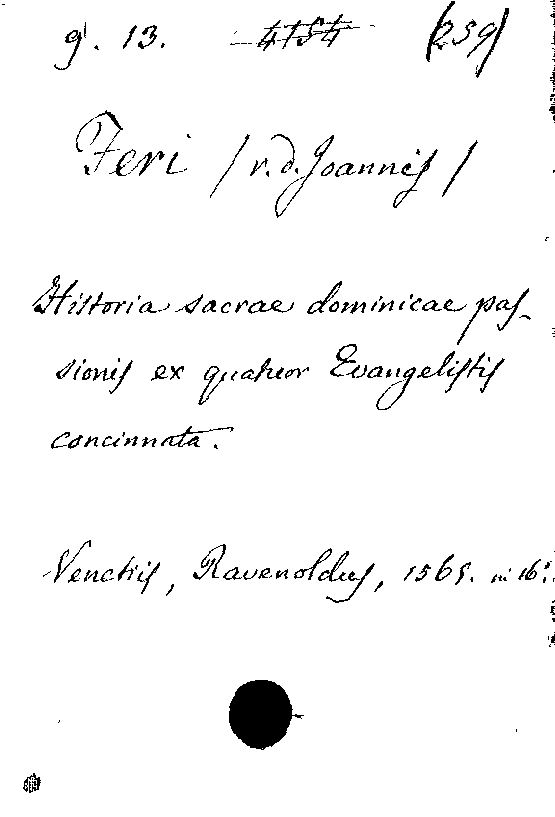 g. 13. 4154 (259)
Feri (r. d. Joannis)
Historia sacrae dominicae pas-
sionis ex quatuor Evangelistis
concinnata.
Venetiis, Ravenoldus, 1565. in 16°.